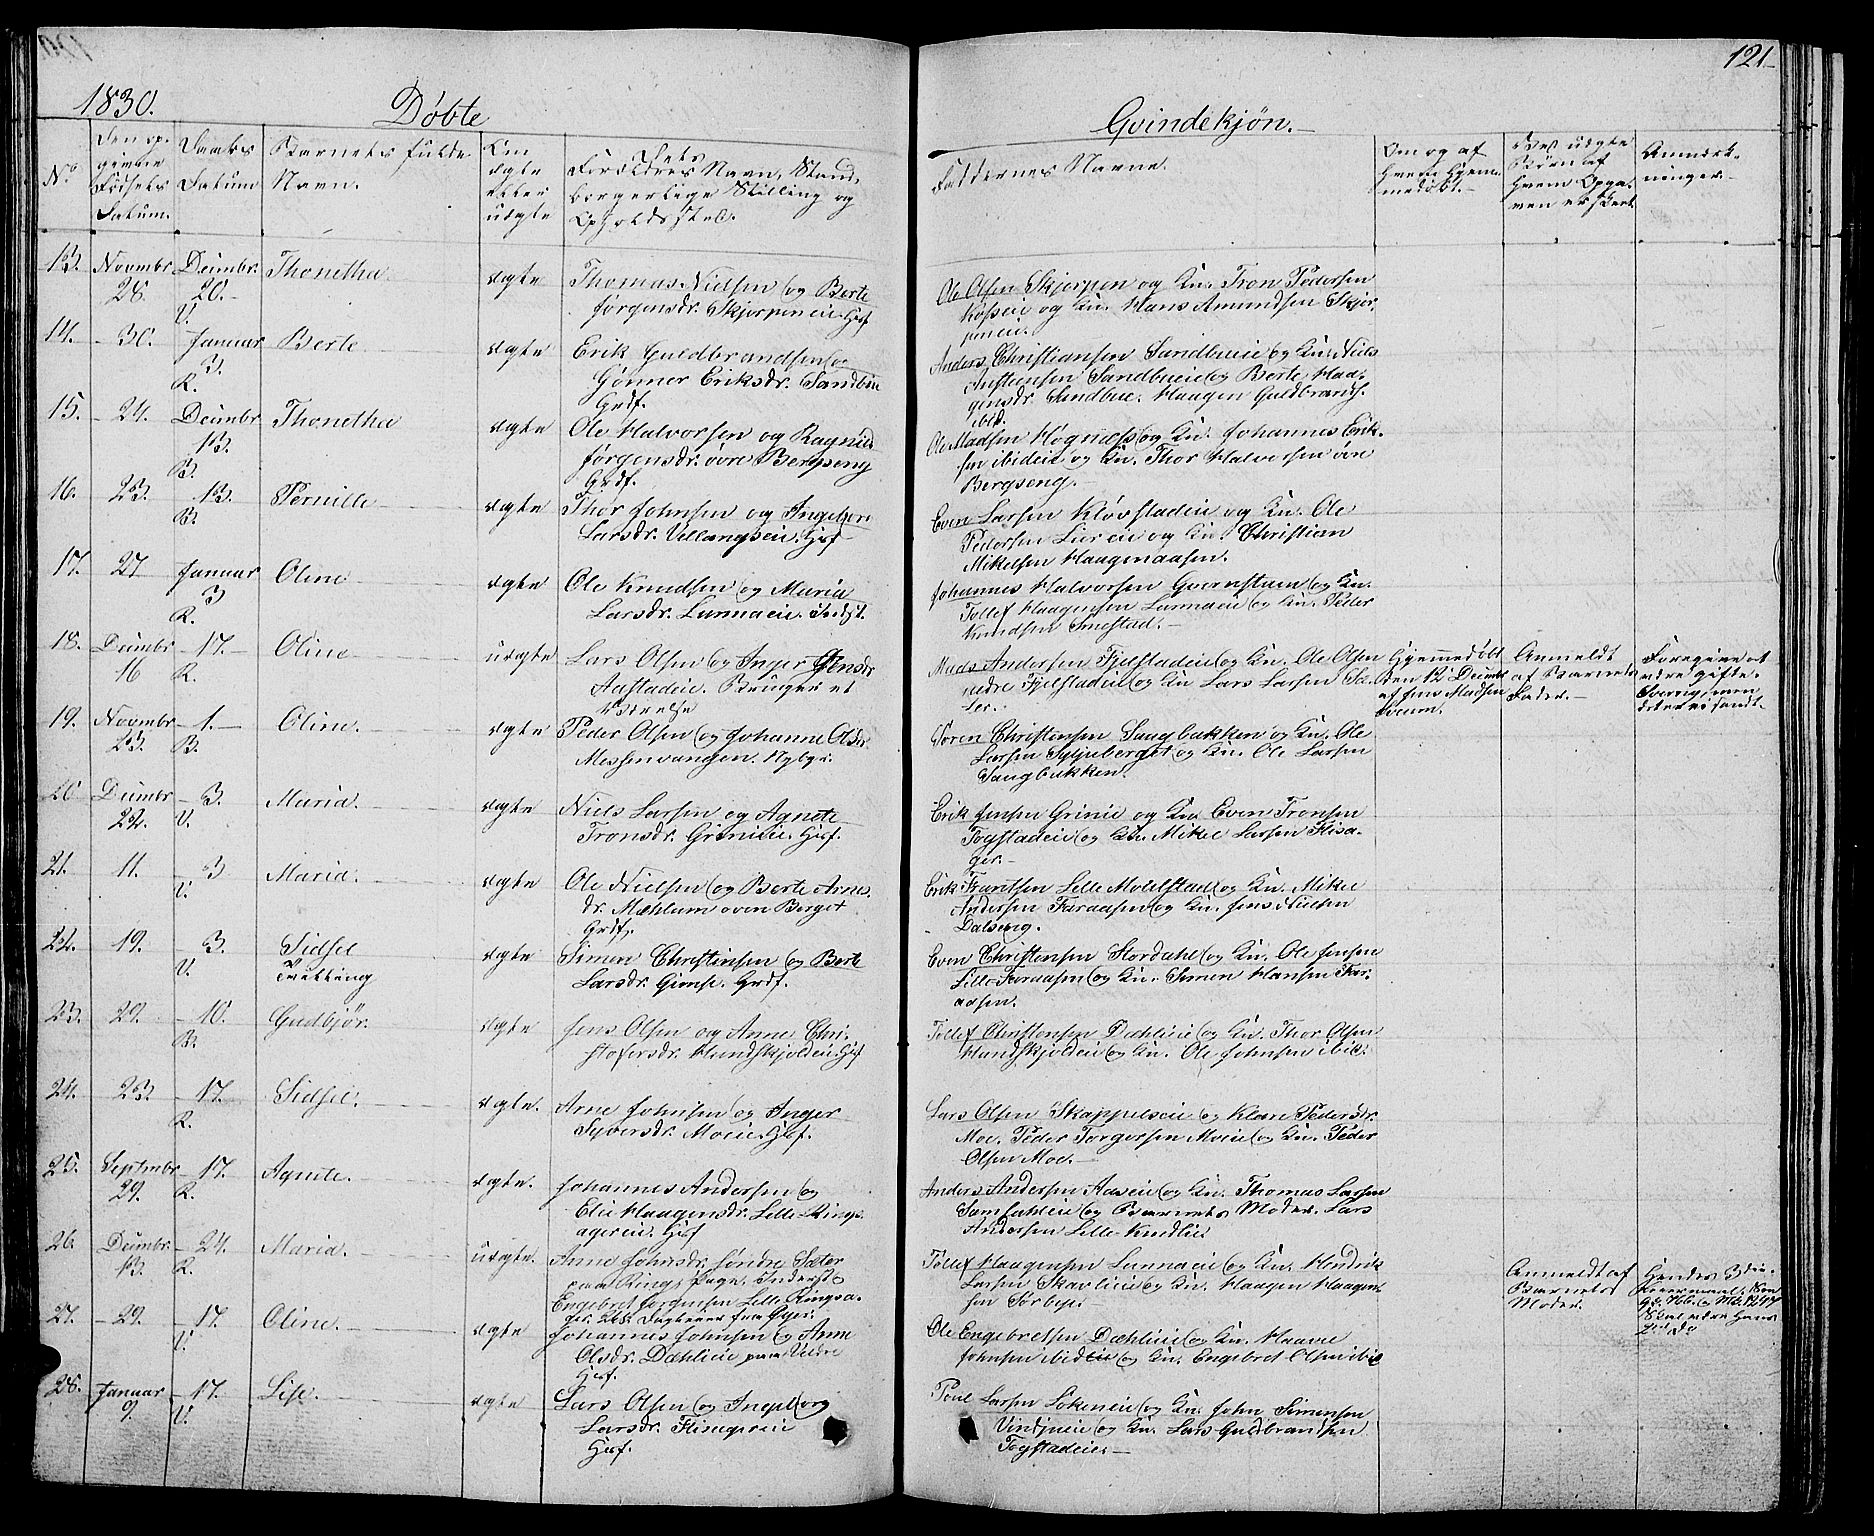 121
1830. Døbte Qvindekjøn.
No Den opgivne Fødsels Datum. Daabs Datum Barnets fulde Navn. Om ægte eller uægte Forældres Navn, Stand, borgerlige Stilling og Opholdssted. Faddernes Navne. Om og af hvem hjemmedøbt. Ved uægte Børn af hvem Opgaven er skeet Anmærkninger.
13. Novmbr 28. Decmbr. 20. V. Thonetha ægte
Thomas Nielsen og Berte
Jørgensdr. Skjerpeneie. Hsf
Ole Olsen Skjerpen og Kn. Tron Pedersen
og Kn. Hans Amundsen Skjer-
peneie.
14. - 30. Januar 3. R. Berte ægte
Erik Guldbrandsen og
Gønner Eriksdr. Sandbue
Grdf.
Anders Christiansen Sandbueie og Kn. Niels
Sandbueie og Berte Haa-
gensdr. Sandbue. Haagen Guldbrands.
ibid.
15. - 24. Decmbr 13. B. Thonetha ægte
Ole Halvorsen og Ragnild
Jørgensdr. øvre Bergseng
Grdf.
Ole Madsen Høgnæss og Kn. Johannes Erik-
sen ibideie og Kn. Thor Halvorsen øvre
Bergseng.
16. 23. 13. B. Pernille ægte
Thor Johnsen og Ingebor
Larsdr. Hsf
Even Larsen Kløvstadeie og Kn. Ole
Pedersen Liereie og Kn. Christian
Mikelsen Haagenaasen.
17. 27 Januar 3 R. Oline ægte
Ole Knudsen og Maria
Larsdr. Lunnaeie. Inderst.
Johannes Halvorsen og Kn.
Tollef Haagensen Lunnaeie og Kn. Peder
Knudsen Smestad.
18. Decmbr 16 - 17. R. Oline uægte
Lars Olsen og Inger Jensdr
Aastadeie. Bruger et
Værelse
Mads Andersen Fjelstadeie og Kn. Ole Olsen
nedre Fjelstadeie og Kn Lars Larsen Sæ-
ter.
Hjemmedøbt
den 12 Decmbr
af Jens Madsen
Anmeldt
af Barnets
Fader.
Foregive at
være gifte i
Sverrig, men
det er ei sandt.
19. Novmbr 23. - 1. B. Oline. ægte
Peder Olsen og Johanne Olsdr.
Messenvangen. Nybygr.
Søren Christensen Saugbakken og Kn. Ole
Larsen Syljuberget og Kn. Ole Larsen
Saugbakken.
20 Decmbr 22. - 3. V. Maria. ægte
Niels Larsen og Agnete
Tronsdr. Grinieie. Hsf.
Erik Jensen Grinie og Kn. Even Tronsen
Togstadeie og Kn. Mikel Larsen Flisa-
ger.
21. 11. - 3 V. Maria. ægte
Ole Nielsen og Berte Arnes-
dr. Mæhlum oven Berget
Grdf.
Erik Frantsen Lille Molstad og Kn. Mikel
Andersen Faraasen og Kn. Jens Nielsen
Dalseng.
22. 19. - 3. V. Sidsel
Tvilling ægte
Simen Christensen og Berte
Larsdr. Gimse. Grdf.
Even Christensen Stordahl og Kn. Ole Jensen
Lille-Faraasen og Kn. Simen Hansen Far-
aasen.
23. 29. - 10. B. Gudbjør. ægte
Jens Olsen og Anne Chri-
stofersdr. Hundskjoldeie. Hsf
Tollef Christensen Dæhlieie og Kn. Thor Olsen
Hundskjoldeie og Kn. Ole Johnsen ibid.
24. 23. - 17. R. Sidsel. ægte.
Arne Johnsen og Inger
Syversdr. Moeie. Hsf.
Lars Olsen Skappelseie og Klare Pedersdr.
Moe. Peder Torgersen Moeie og Kn. Peder
Olsen Moe.
25. Septmbr 29. - 17. R. Agnete. ægte.
Johannes Andersen og
Elie Haagensdr. Lille-Rings-
agereie. Hsf
Anders Andersen Aaseie og Kn. Thomas Larsen
og Barnets Moder. Lars
Andersen Lille
26. Decmbr. 13. - 24. R. Maria. uægte.
Anne Johnsdr. søndre Sæter
paa Rings. Inderst og
Engebret Jørgensen Lille Ringsa-
ger.
Tollef Haagensen Lunnaeie og Kn. Hendrik
Larsen Skavlieie og Kn. Haagen Haagen-
sen Sørby.
Anmeldt af
Barnets
Moder.
Hendes 3die
27. - 29. - 17. V. Oline. ægte
Johannes Johnsen og Anne
Olsdr. Dæhlieie paa Veldre
Hsf.
Ole Engebretsen Dæhlieie og Kn. Haavel
Johnsen ibideie og Kn. Engebret Olsen ibid
28. Januar 9. - 17. V. Lise. ægte
Lars Olsen og Ingeborg
Larsdr.
Hsf.
Poul Larsen Løkeneie og Kn. John Simensen
og Kn. Lars Guldbrandsen
Togstadeie.